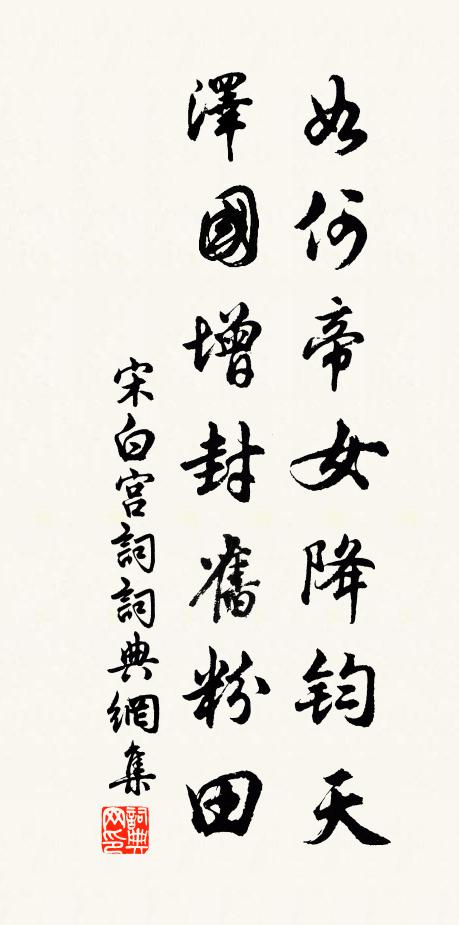 如何帝女降鈞天
澤國增封舊粉田
宋白宮詞詞典網集
詞典网印